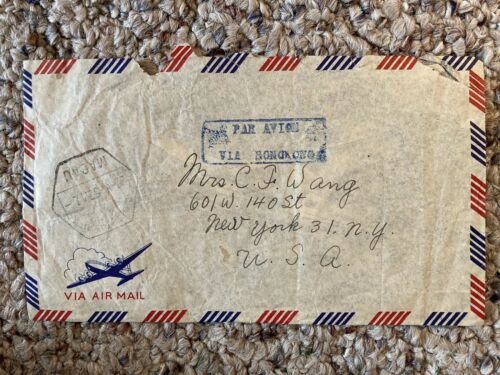 PAR AVION
VIA HONGKONG
Mrs. C. F. Wang
601 W. 140 St
New York 31. N.Y.
U. S. A.
VIA AIR MAIL